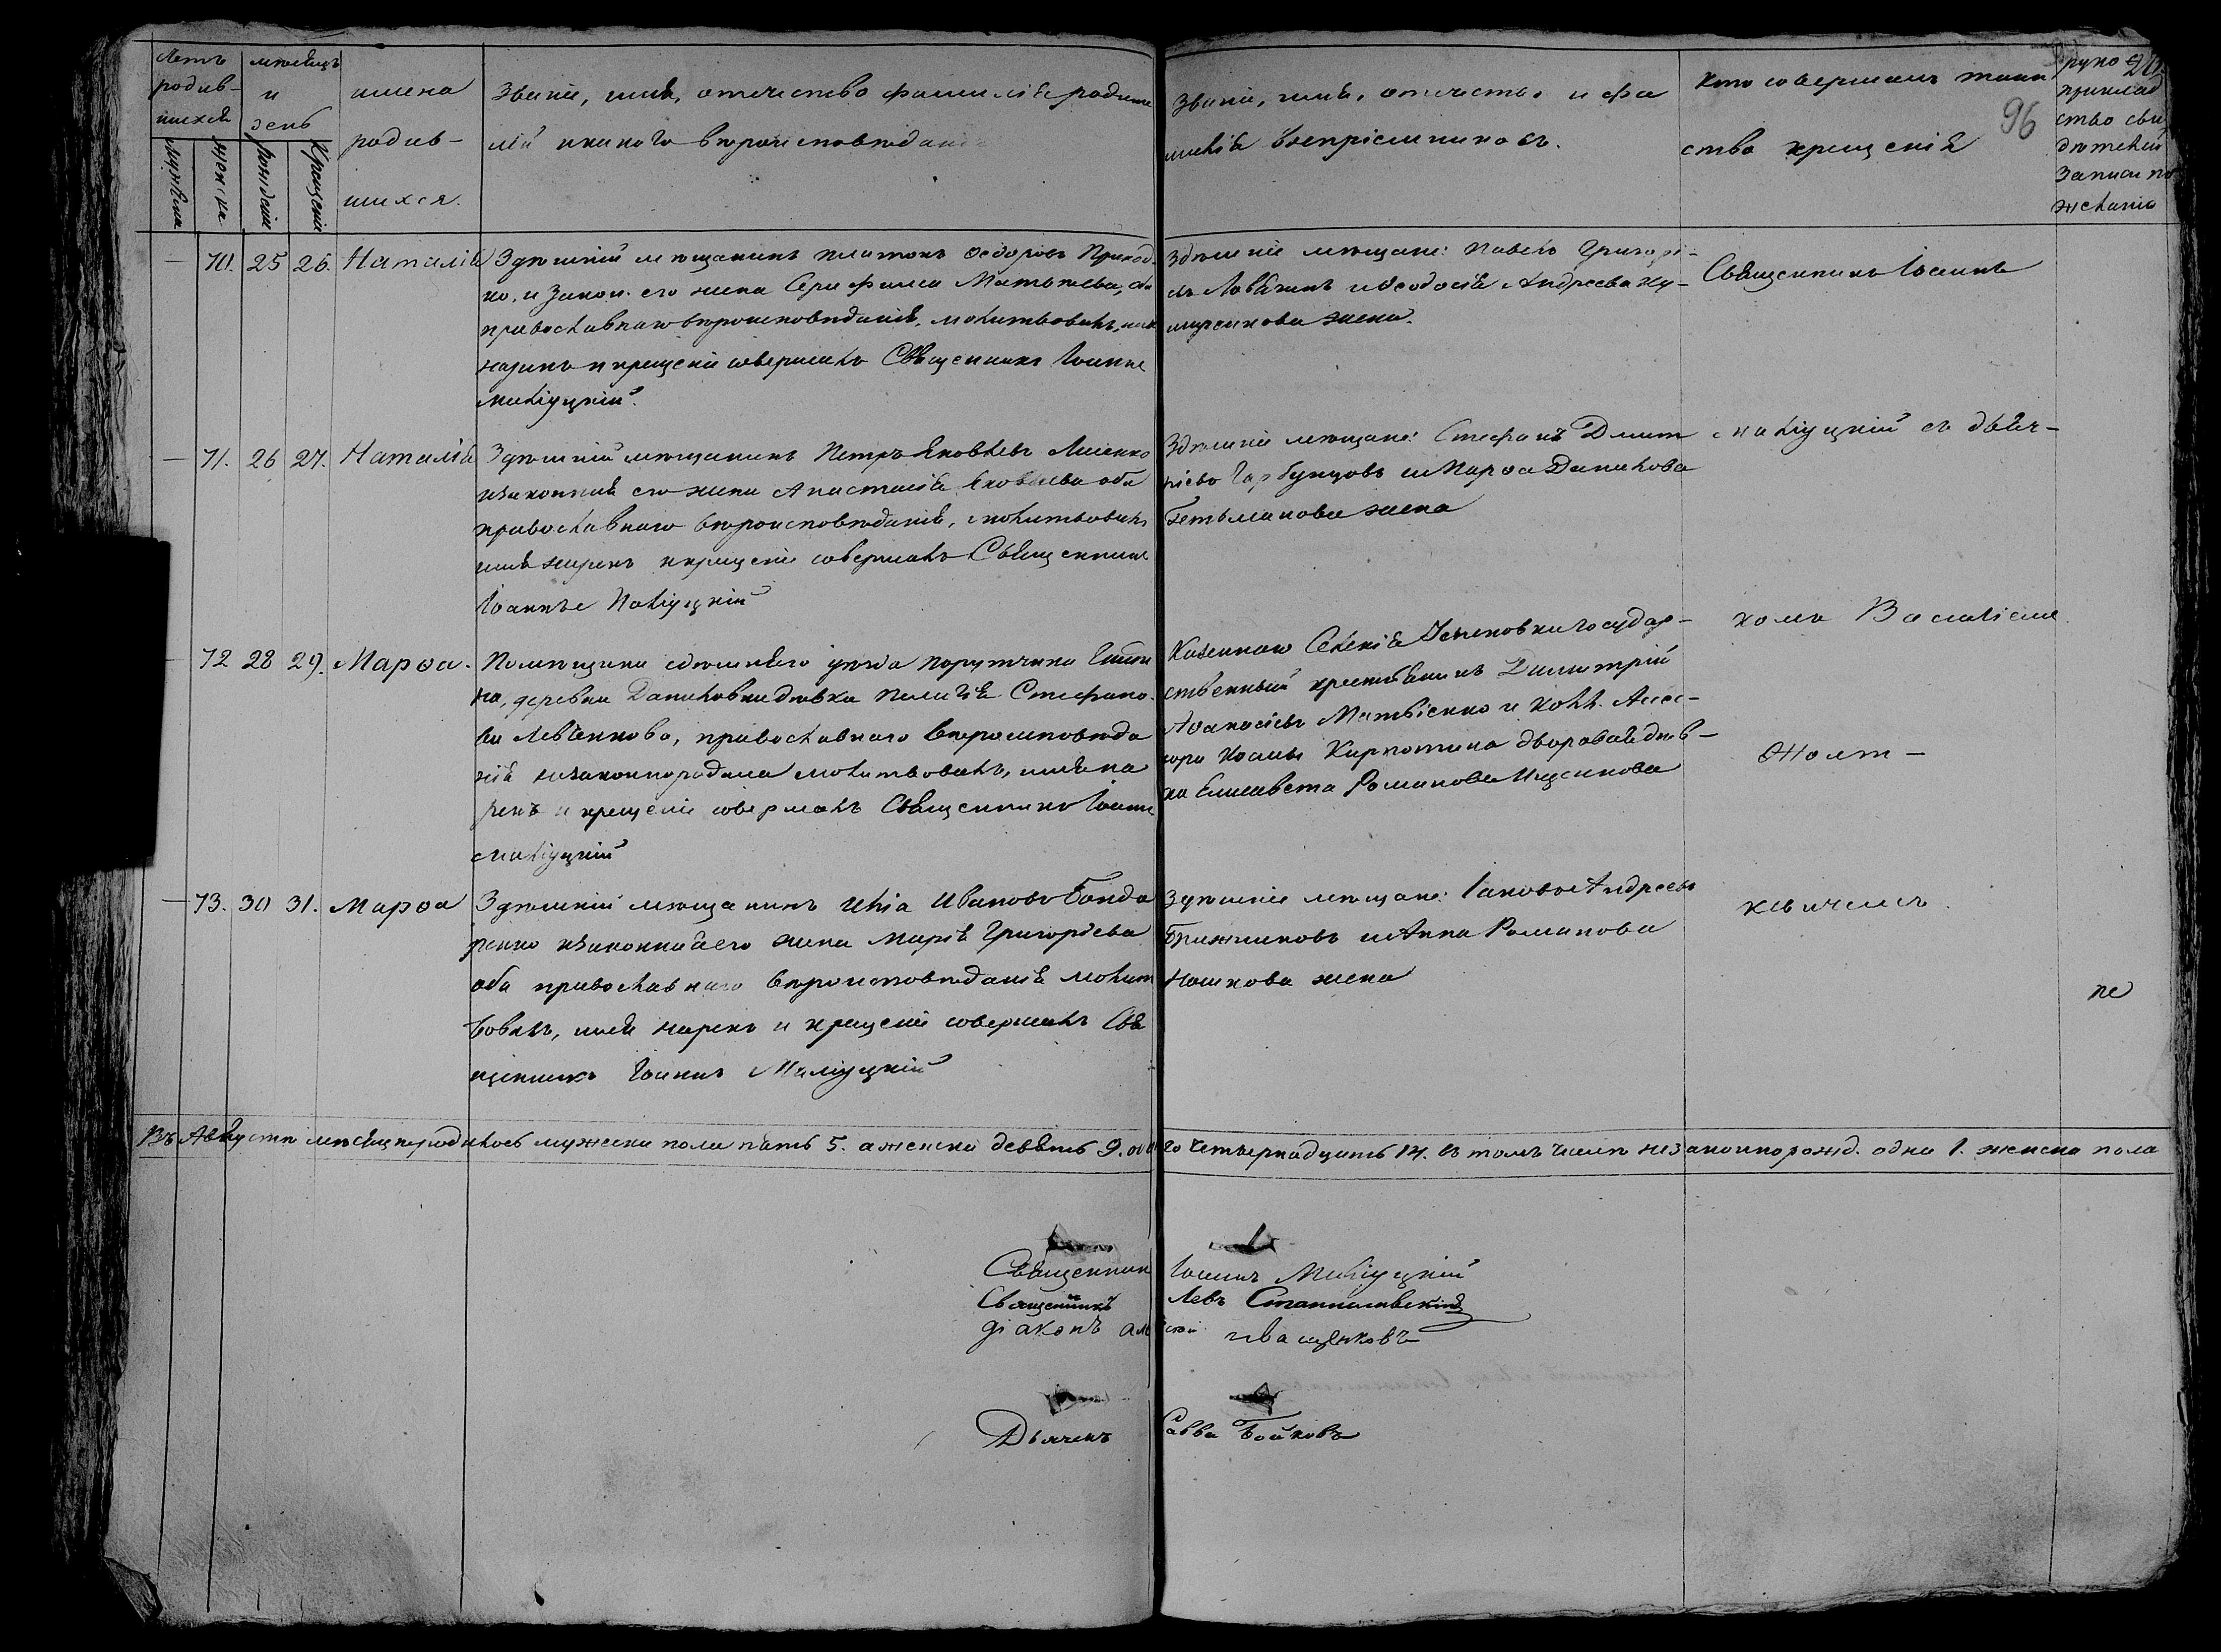 Летъ родив-шихся
мужеска
женска
мѣсяцъ и день
рожденія
крещенія
имена родив-шихся.
Званіе, имя, отечество фамилія родите
лей и какого вѣроисповѣданія
Званіе, имя, отечество и фа
милія воспріемниковъ.
Кто совершалъ таин
ство крещенія
96
руко
приклад
ство сви
дѣтелей
записи по
желанію
— 70. 25 26. Наталія
Здѣшній мѣщанинъ Платонъ Ѳедоровъ Приход
ко, и закон. его жена Серафима Матвѣева, оба
православнаго вѣроисповѣданія, молитвовалъ, имя
нарекъ и крещеніе совершалъ Священникъ Іоаннъ
Маліуцкій.
Здѣшніе мѣщане: Павелъ Григорі-
евъ и Ѳеодосія Андреева
жена.
Священникъ Іоаннъ
— 71. 26 27. Наталія
Здѣшній мѣщанинъ Петръ Яковлевъ Лисенко
и законная его жена Анастасія Яковлева оба
православнаго вѣроисповѣданія, молитвовалъ
имя нарекъ и крещеніе совершалъ Священникъ
Іоаннъ Маліуцкій
Здѣшніе мѣщане: Стефанъ Дмит
ріевъ Гарбузцовъ и Марѳа Данилова
Гетьманова жена
Маліуцкій съ дьяч-
— 72 28 29. Марѳа.
Помѣщика здѣшняго уѣзда порутчика
деревни Даниловки дѣвка Пелагія Стефано
ва Левченкова, православнаго вѣроисповѣда
нія незаконнородила молитвовалъ, имя на
рекъ и крещеніе совершалъ Священникъ Іоаннъ
Маліуцкій
Казеннаго Селенія государ-
ственный крестьянинъ Димитрій
Аѳанасіевъ Матвіенко и Колл. Ассес-
сора Карпотина дворовая дѣв-
ка Елисавета Романова
комъ Василіемъ
Жолт-
— 73. 30 31. Марѳа
Здѣшній мѣщанинъ Илія Ивановъ Бонда
ренко и законная его жена Марія Григорьева
оба православнаго вѣроисповѣданія молит
вовалъ, имя нарекъ и крещеніе совершалъ Свя
щенникъ Іоаннъ Маліуцкій
Здѣшніе мѣщане: Іаковъ Андреевъ
Брижниковъ и Анна Романова
Ношкова жена
кевичемъ.
не
Въ Августѣ мѣсяцѣ родилось мужеска пола пять 5. а женска девять 9. обоего четырнадцать 14. въ томъ числѣ незаконнорожд. одна 1. женска пола
Священникъ Іоаннъ Маліуцкій
Священникъ Левъ Станиславскій
діаконъ Иващенковъ
Дьячекъ Савва Бойковъ